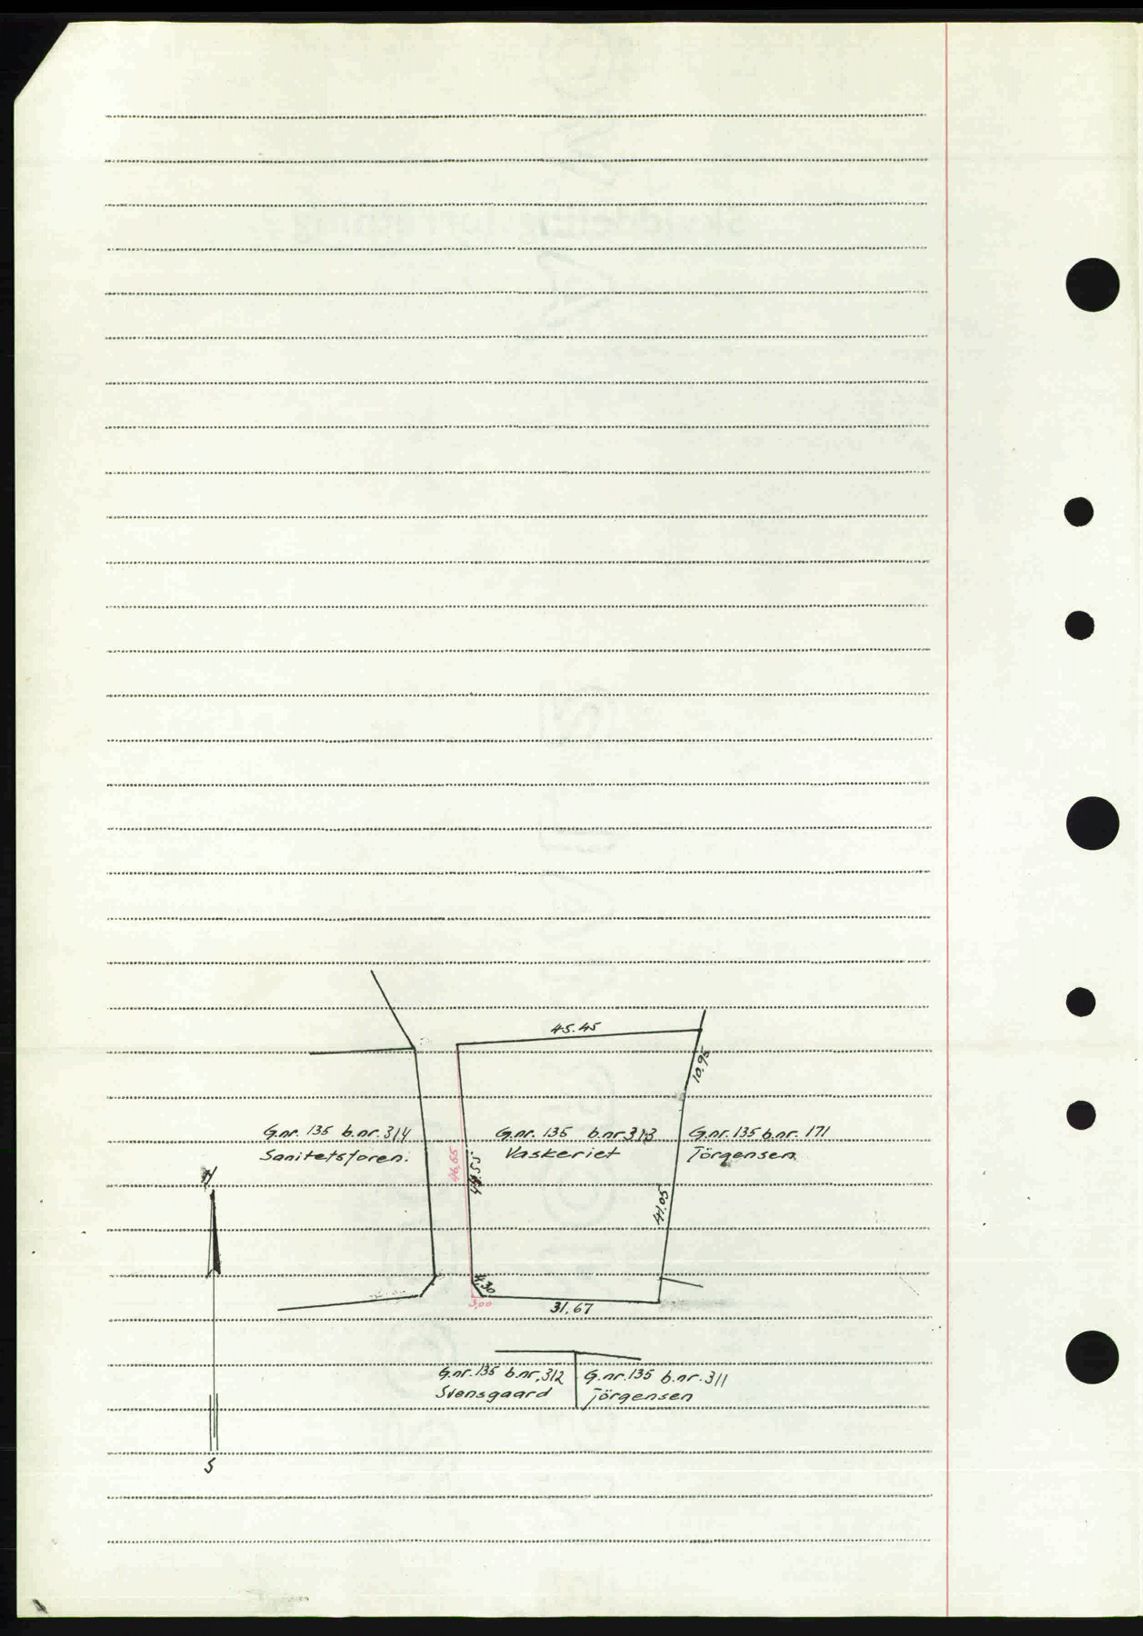 45.45
10.95
G.nr. 135 b.nr. 314
Sanitetsforen.
G.nr. 135 b.nr 313
Vaskeriet
G.nr. 135 b.nr. 171
Jörgensen.
46,65
41.05
N
4.30
3,00
31.67
G.nr. 135 b.nr. 312
Svensgaard
G.nr. 135 b.nr. 311
Jörgensen
S